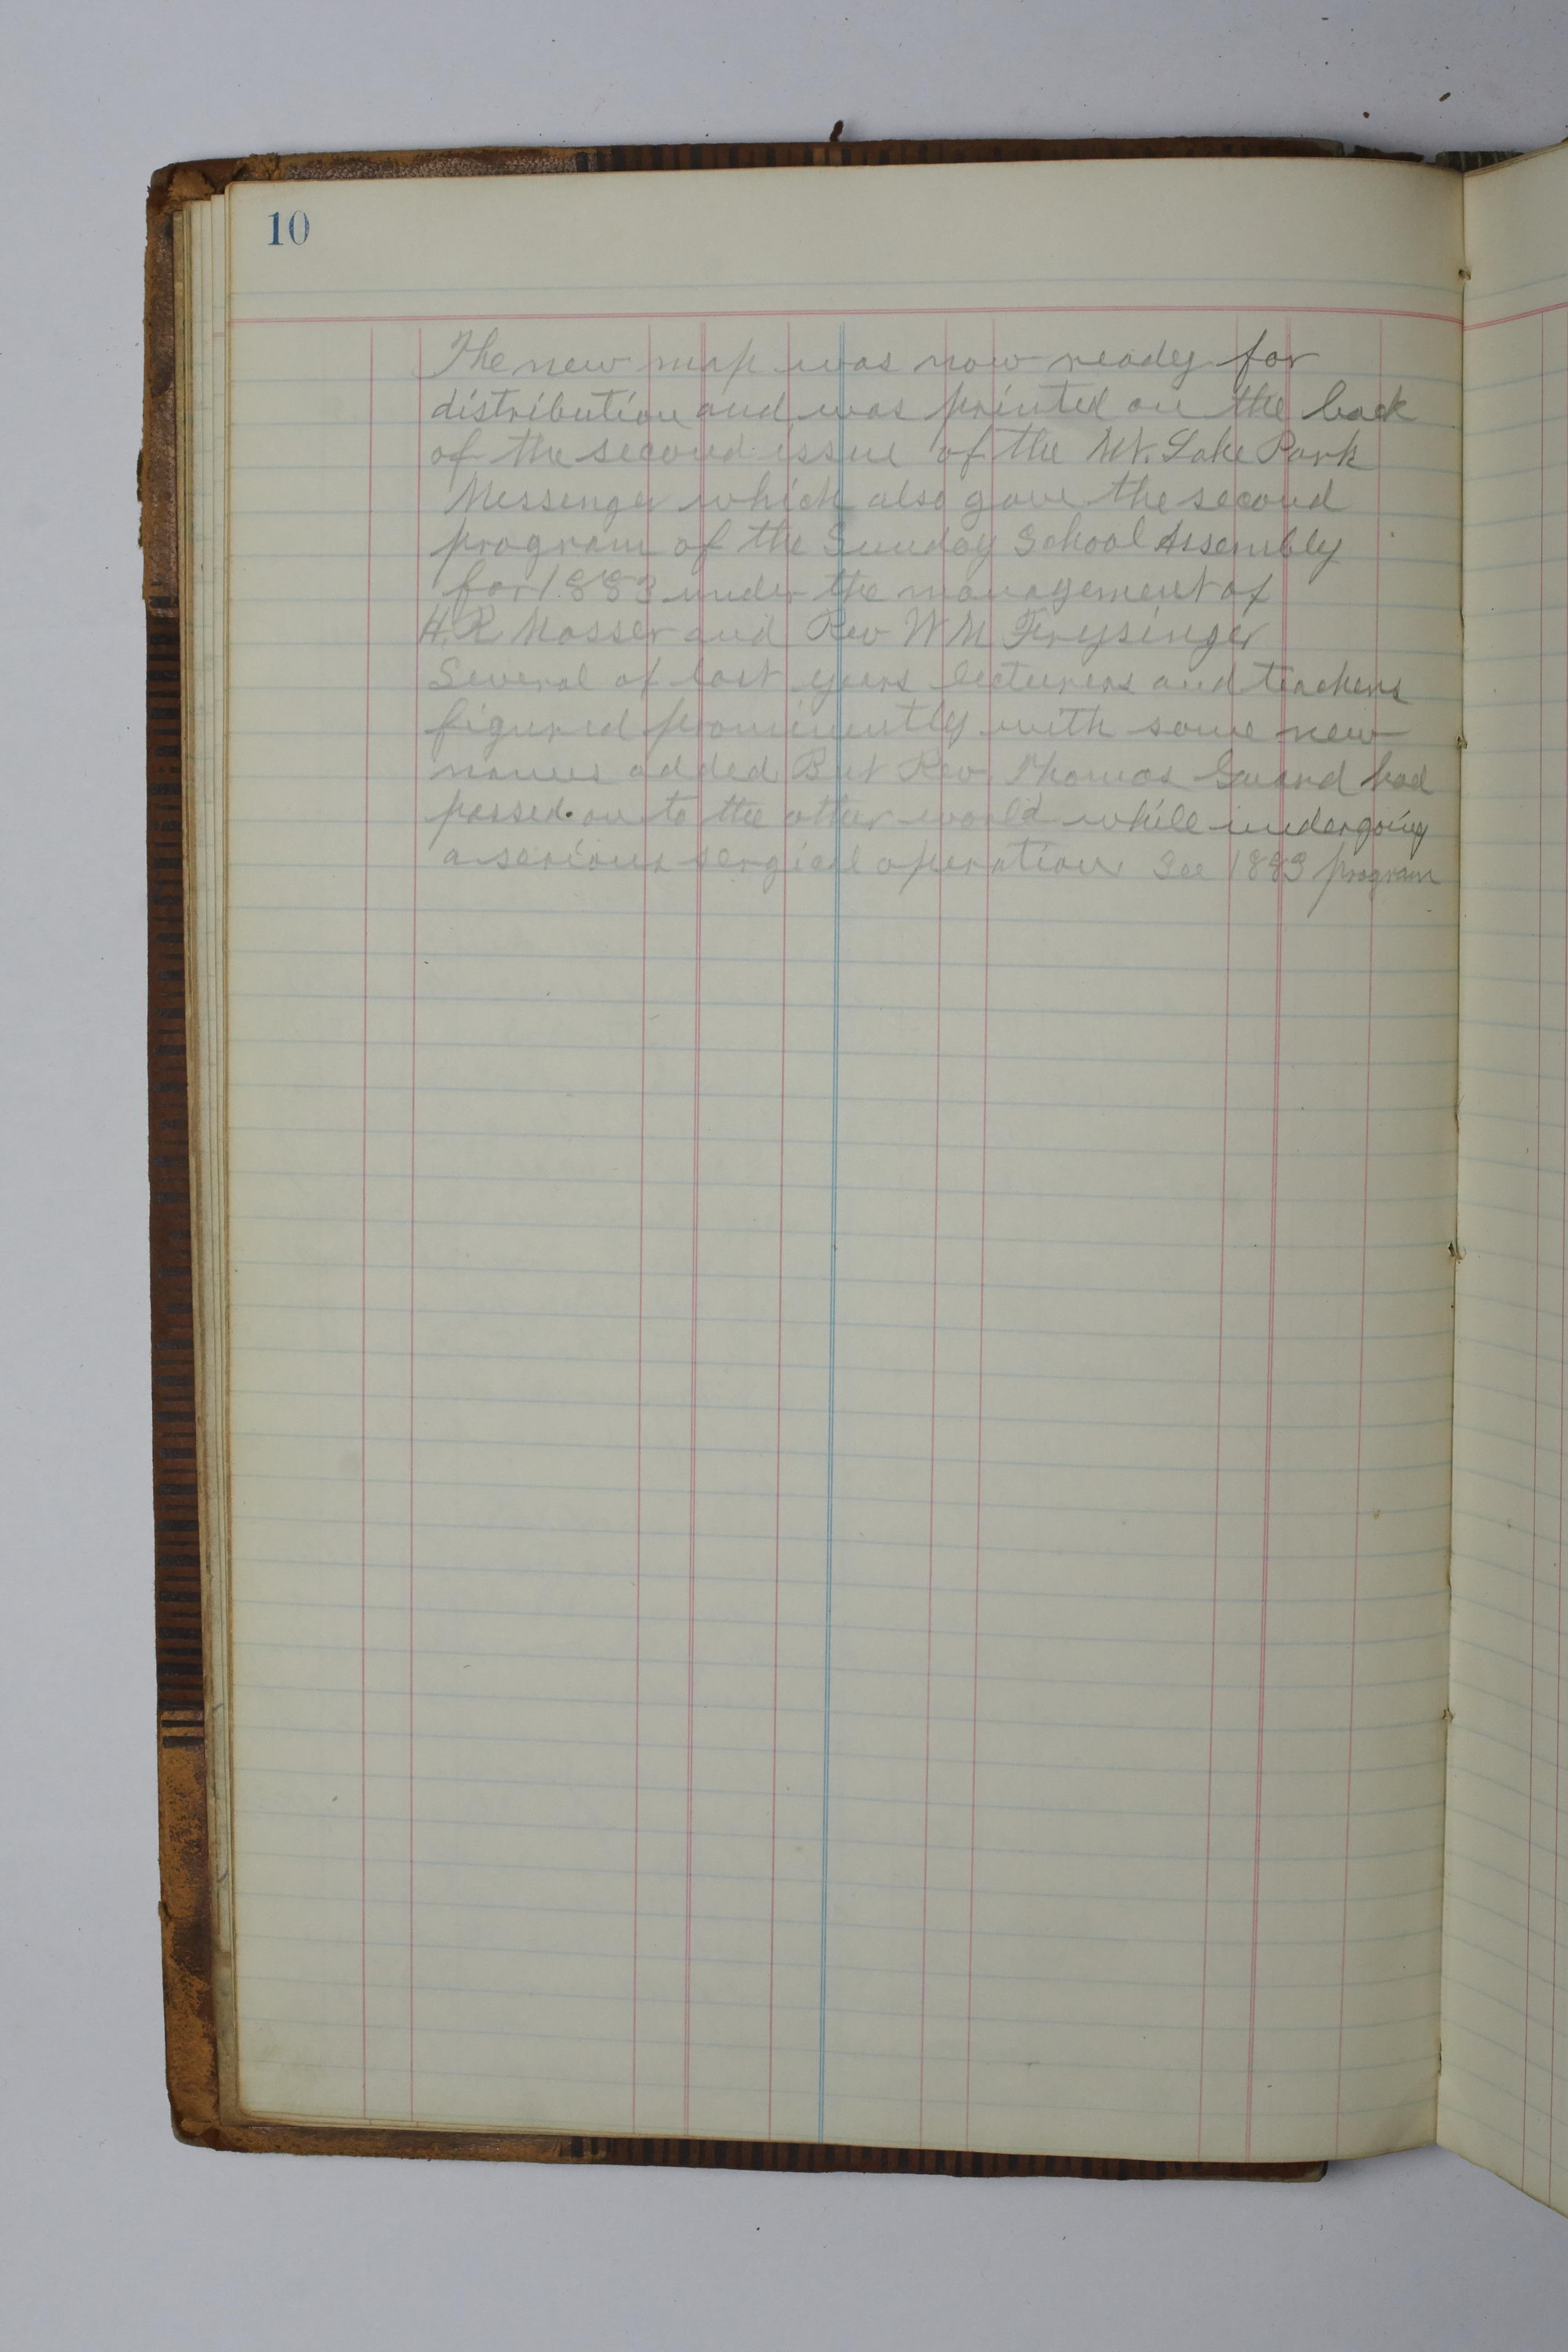 10
The new map was now ready for
distribution and was printed on the back
of the second issue of the Mt. Lake Park
Messenger which also gave the second
program of the Sunday School Assembly
for 1883 under the management of
H.R Mosser and Rev W M Frysinger
Several of last years lecturers and teachers
figured prominently with some new
names added But Rev. Thomas Guard had
passed on to the other world while undergoing
a serious sergical operation. See 1883 program